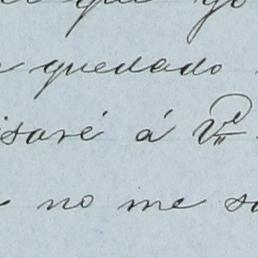 que yo
quedado
isaré á Vd
no me s